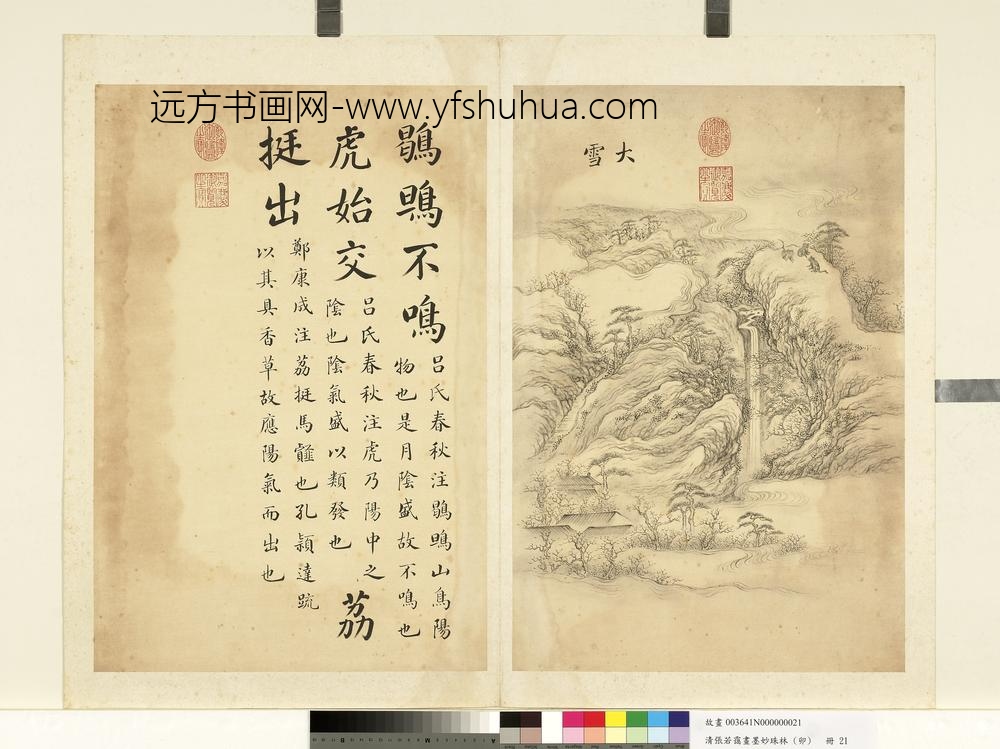 远方书画网-www.yfshuhua.com
大雪
鶡鴠不鳴
呂氏春秋注鶡鴠山鳥陽
物也是月陰盛故不鳴也
虎始交
呂氏春秋注虎乃陽中之
陰也陰氣盛以類發也
荔
挺出
鄭康成注荔挺馬䪥也孔穎達疏
以其具香草故應陽氣而出也
故畫 003641N000000021
清張若靄畫墨妙珠林（卯） 冊 21